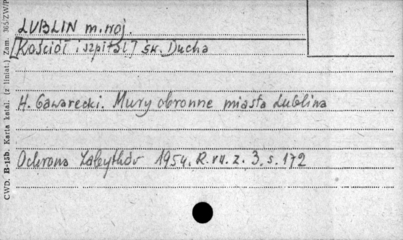 LUBLIN m. woj.
[Kościół i szpital] św. Ducha
H. Gawarecki. Mury obronne miasta Lublina
Ochrona Zabytków 1954. R. VII. z. 3, s. 172
CWD. B-15b. Karta katal. (z liniat.) Zam.